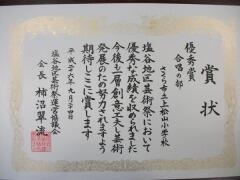 賞状
優秀賞
合唱の部
さくら市立上松山小学校
塩谷地区芸術祭において
優秀な成績を収められました
今後も一層創意工夫し芸術
発展のため努力されますよう
期待しここに賞します
平成二十六年九月二十四日
塩谷地区芸術祭運営協議会
会長 柿沼翠流